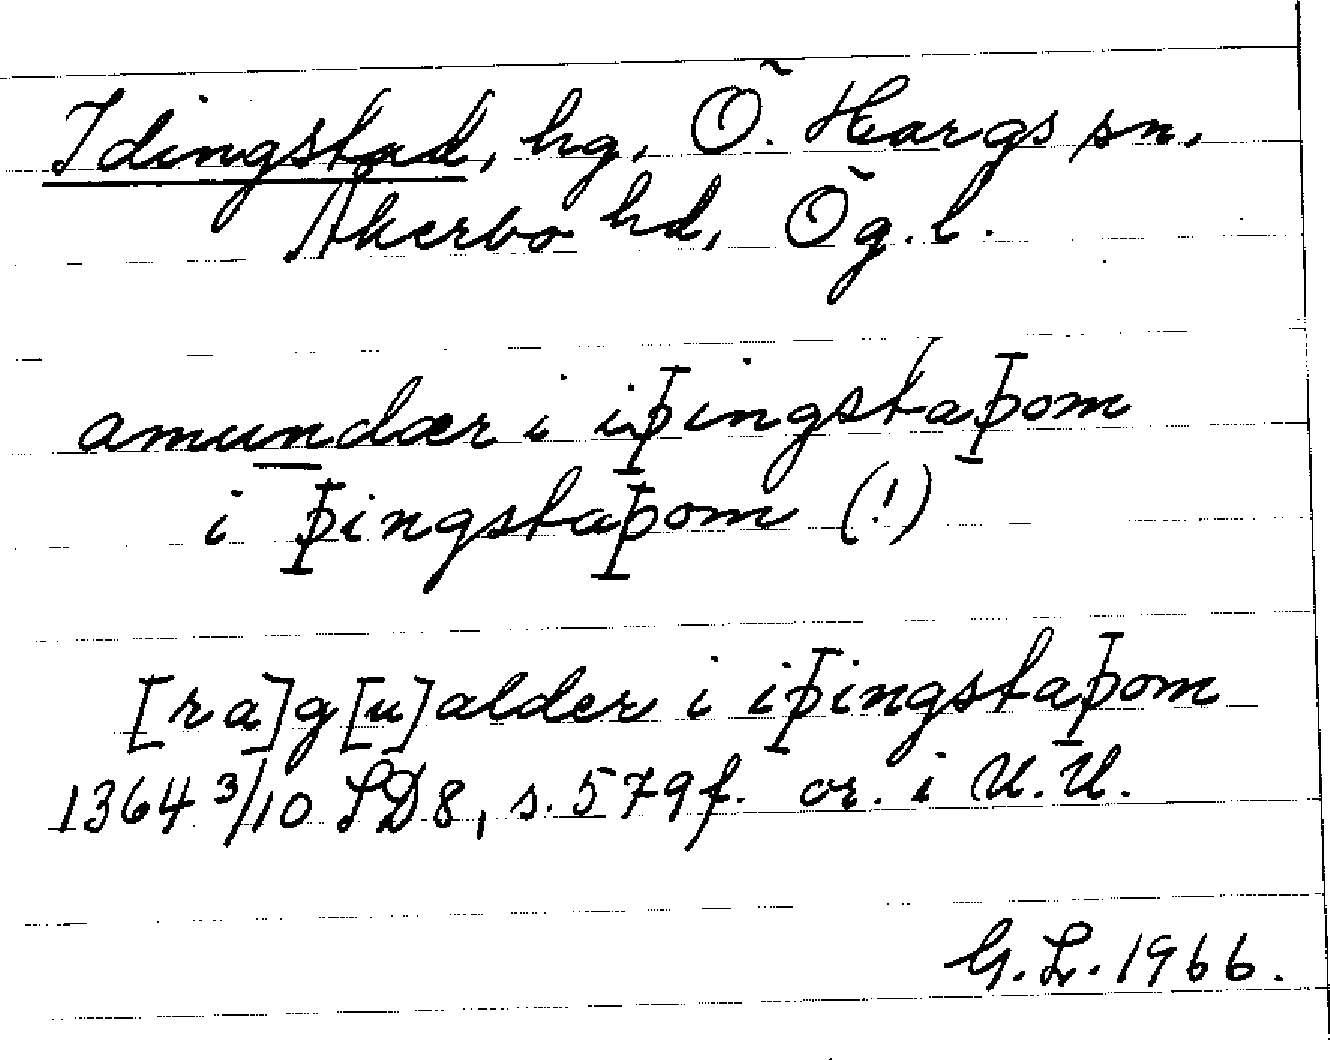 Idingstad, hg, Ö. Hargs sn,
Åkerbo hd, Ög. l.
amundær i iþingstaþom
i þingstaþom (!)
[ra]g[u]alder i iþingstaþom
1364 3/10 SD8, s. 579f. or. i U.U.
G.L. 1966.